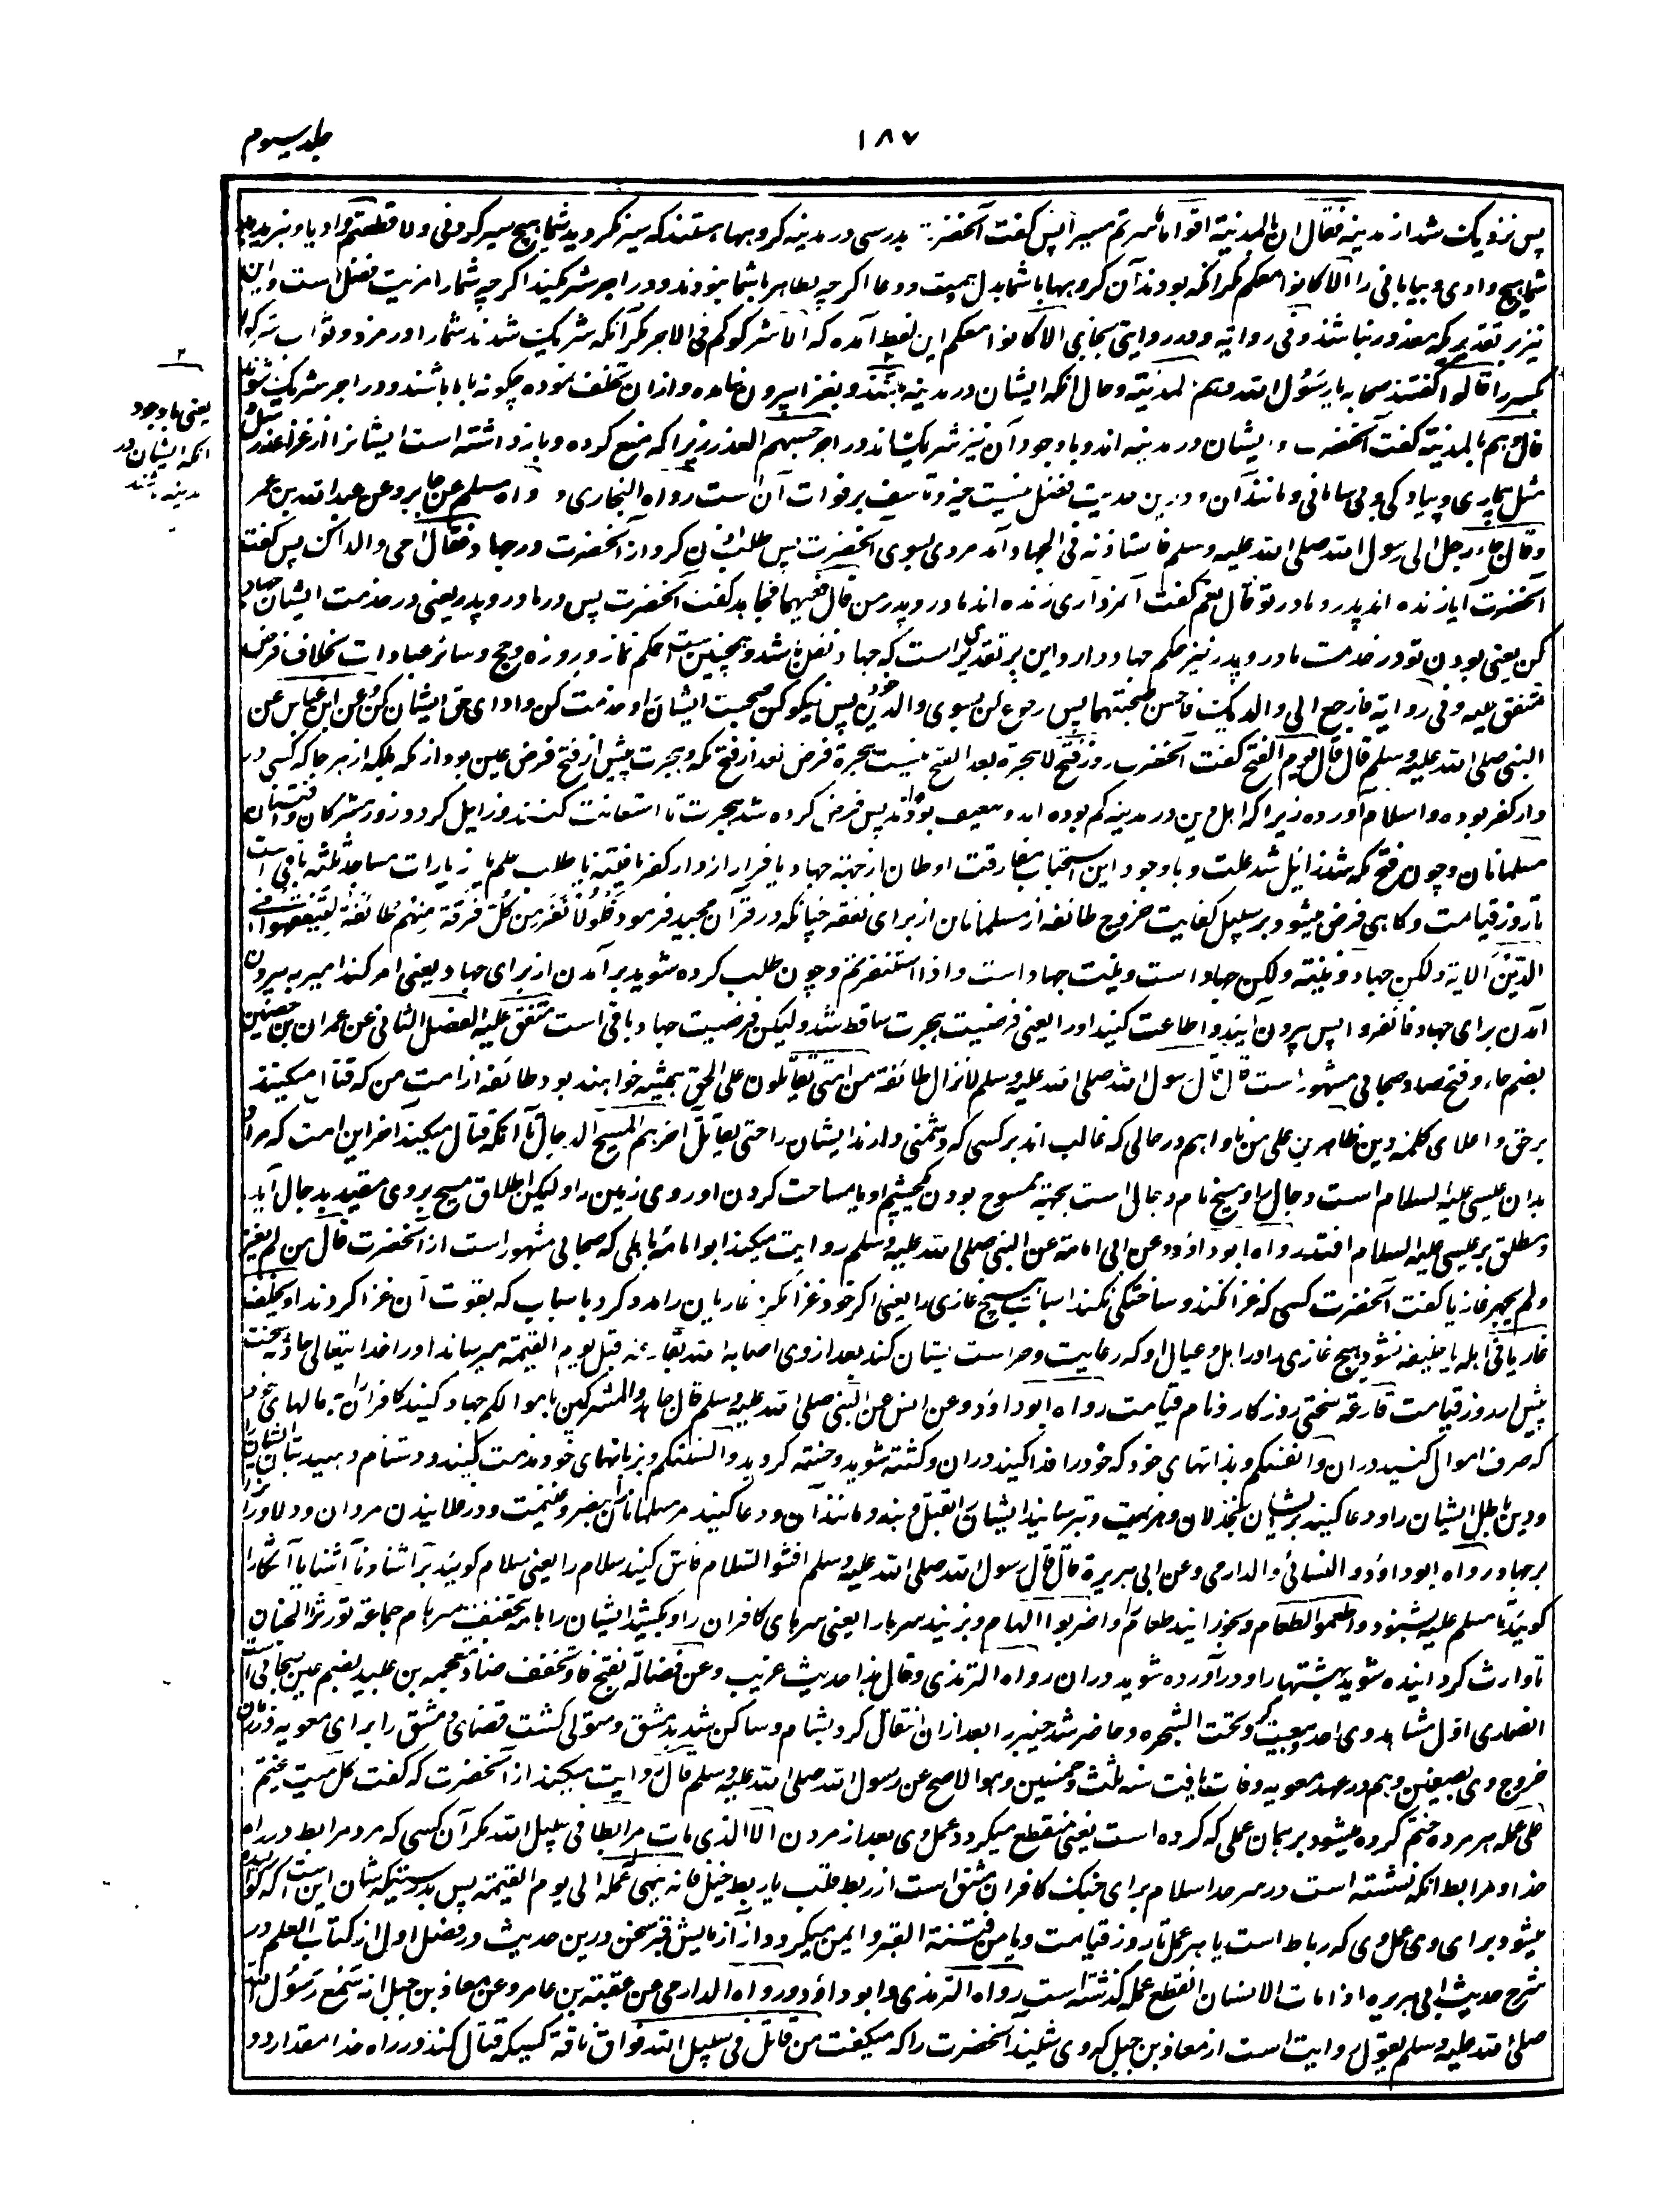 ۱۸۷
جلد سیوم
پس نزدیک شد از مدینه فقال ان بالمدینة اقواما ما سرتم مسیرا پس گفت آنحضرت بدرستی در مدینه گروهها هستند که سیر نکردید شما هیچ سیر کردنی ولا قطعتم وادیا و نبریدید
شما هیچ وادی و بیابانی را الا کانوا معکم مگر آنکه بودند آن گروهها با شما بدل و همت و دعا اگر چه بظاهر با شما نبودند و در اجر شریکند اگر چه شما را مزیت فضل است و این
نیز بر تقدیریکه معذور نباشند وفی روایة و در روایتی بجای الا کانوا معکم این لفظ آمده که الا شرکوکم فی الاجر مگر آنکه شریک شدند شما را در مزد و ثواب
قالوا گفتند صحابه یا رسول الله وهم بالمدینة و حال آنکه ایشان در مدینه باشند و بغزا بیرون نیامده و ازان تخلف نموده چگونه با ما باشند و در اجر شریک شوند
قال وهم بالمدینة گفت آنحضرت و ایشان در مدینه اند و باوجود آن نیز شریک اند در اجر حبسهم العذر زیرا که منع کرده و باز داشته است ایشانرا از غزا عذر
مثل بیماری و پیادگی و بی سامانی و مانند آن و درین حدیث فضل نیت خیر و تاسف بر فوات آن است رواه البخاری و رواه مسلم عن جابر وعن عبدالله بن عمر
وقال جاء رجل الی رسول الله صلی الله علیه وسلم فاستاذنه فی الجهاد آمد مردی بسوی آنحضرت پس طلب اذن کرد از آنحضرت در جهاد فقال احی والداک پس گفت
آنحضرت آیا زنده اند پدر و مادر تو قال نعم گفت آنمرد آری زنده اند مادر و پدر من قال ففیهما فجاهد گفت آنحضرت پس در مادر و پدر یعنی در خدمت ایشان جهاد
کن یعنی بودن تو در خدمت مادر و پدر نیز حکم جهاد دارد و این بر تقدیری است که جهاد نفل باشد و همچنین است حکم نماز و روزه و حج و سائر عبادات بخلاف فرض
متفق علیه وفی روایة فارجع الی والدیک فاحسن صحبتهما پس رجوع کن بسوی والدین خود پس نیکو کن صحبت ایشان و خدمت کن و ادای حق ایشان کن وعن ابن عباس عن
النبی صلی الله علیه وسلم قال قال یوم الفتح گفت آنحضرت روز فتح لا هجرة بعد الفتح نیست هجرة فرض بعد از فتح مکه و هجرت پیش از فتح فرض عین بود از مکه بلکه از هر جا که کسی در
دار کفر بوده و اسلام آورده زیرا که اهل دین در مدینه کم بوده اند و ضعیف بودند پس فرض کرده شد هجرت تا استعانت کنند و زایل گردد زور مشرکان و فتنه آن
مسلمانان و چون فتح مکه شد زائل شد علت و باوجود این استحباب مفارقت اوطان از جهته جهاد یا فرار از دار کفر یا فتنه یا طلب علم یا زیارات مساجد ثلثه باقی است
تا روز قیامت و گاهی فرض میشود بر سبیل کفایت خروج طائفه از مسلمانان از برای تفقه چنانکه در قرآن مجید فرمود فَلَوْلَا نَفَرَ مِنْ كُلِّ فِرْقَةٍ مِنْهُمْ طَائِفَةٌ لِيَتَفَقَّهُوا فِي
الدِّينِ الایة ولکن جهاد ونیة ولکن جهاد است و نیت جهاد است واذا استنفرتم و چون طلب کرده شوید برآمدن از برای جهاد یعنی امر کند امیر به بیرون
آمدن برای جهاد فانفروا پس بیرون آیید و اطاعت کنید او را یعنی فرضیت هجرت ساقط شد ولیکن فرضیت جهاد باقی است متفق علیه الفصل الثانی عن عمران بن حصین
بضم حاء و فتح صاد صحابی مشهور است قال قال رسول الله صلی الله علیه وسلم لا تزال طائفة من امتی یقاتلون علی الحق همیشه خواهند بود طائفه از امت من که قتال میکنند
بر حق و اعلای کلمه دین ظاهرین علی من ناواهم در حالی که غالب اند بر کسی که دشمنی دارند ایشان را حتی یقاتل آخرهم المسیح الدجال تا آنکه قتال میکند آخر این امت که مراد
بدان عیسی علیه السلام است دجال را و مسیح نام دجال است بجهته ممسوح بودن یکچشم او یا مساحت کردن او روی زمین را ولیکن اطلاق مسیح بر وی مقید بدجال آید
و مطلق بر عیسی علیه السلام افتد رواه ابو داؤد وعن ابی امامة عن النبی صلی الله علیه وسلم روایت میکند ابو امامه باهلی که صحابی مشهور است از آنحضرت قال من لم یغز
ولم یجهز غازیا گفت آنحضرت کسی که غزا نکند و ساختگی نکند اسباب هیچ غازی را یعنی اگر خود غزا نکرد غازیان را مدد کرد باسباب که بقوت آن غزا کردند او یخلف
غازیا فی اهله یا خلیفه نشود هیچ غازی را در اهل و عیال او که رعایت و حراست ایشان کند بعد از وی اصابه الله بقارعة قبل یوم القیمة میرساند او را خدا تعالی حادثه سخت
پیش از روز قیامت قارعه سختی روزگار و نام قیامت رواه ابو داؤد وعن انس عن النبی صلی الله علیه وسلم قال جاهدوا المشرکین باموالکم جهاد کنید کافران را بمالهای خود
که صرف اموال کنید در آن وانفسکم و بذاتهای خود که خود را فدا کنید در آن و کشته شوید و خسته گردید والسنتکم و بزبانهای خود مذمت کنید و دشنام دهید بتان ایشان را
و دین باطل ایشان را و دعا کنید بر ایشان بخذلان و هزیمت و بترسانید ایشان را بقتل و بند و مانند آن و دعا کنید مر مسلمانان را بنصر و غنیمت و درطلبانیدن مردان و دلاوران
بر جهاد رواه ابو داؤد والنسائی والدارمی وعن ابی هریرة قال قال رسول الله صلی الله علیه وسلم افشوا السلام فاش کنید سلام را یعنی سلام گویید بر آشنا و نا آشنا یا آشکارا
گویید تا مسلم علیه بشنود واطعموا الطعام و بخورانید طعام را واضربوا الهام و بزنید سرها را یعنی سرهای کافران را و بکشید ایشان را هام بتخفیف میم سرها جماعة تورثوا الجنان
تا وارث گردانیده شوید بهشتها را و در آورده شوید در آن رواه الترمذی وقال هذا حدیث غریب وعن فضالة بفتح فا و تخفیف ضاد معجمه بن عبید بضم عین صحابی است
انصاری اول مشاهد وی احد و بیعت کرد تحت الشجره و حاضر شد خیبر را بعد ازان انتقال کرد بشام و ساکن شد بدمشق و متولی گشت قضای دمشق را برای معویه در زمان
خروج وی بصفین و هم در عهد معویه وفات یافت سنه ثلث وخمسین وهو الاصح عن رسول الله صلی الله علیه وسلم قال روایت میکند از آنحضرت که گفت کل میت یختم
علی عمله هر مرده ختم کرده میشود بر همان عملی که کرده است یعنی منقطع میگردد عمل وی بعد از مردن الا الذی مات مرابطا فی سبیل الله مگر آن کسی که مرد مرابط در راه
خدا و مرابط آنکه نشسته است در سرحد اسلام برای جنگ کافران مشتق است از ربط قلب یا ربط خیل فانه ینمی عمله الی یوم القیمة پس بدرستیکه شان این است که گوالیده
میشود برای وی عمل وی که رباط است یا هر عمل تا روز قیامت ویامن فتنة القبر و ایمن میگردد از آزمایش قبر سخن درین حدیث در فصل اول از کتاب العلم در
شرح حدیث ابی هریره اذا مات الانسان انقطع عمله گذشته است رواه الترمذی وابو داؤد ورواه الدارمی عن عقبة بن عامر وعن معاذ بن جبل انه سَمِعَ رَسُولَ الله
صلی الله علیه وسلم یقول روایت است از معاذ بن جبل که وی شنید آنحضرت را که میگفت من قاتل فی سبیل الله فواق ناقة کسیکه قتال کند در راه خدا مقدار دو
۲
یعنی باوجود
آنکه ایشان در
مدینه باشند